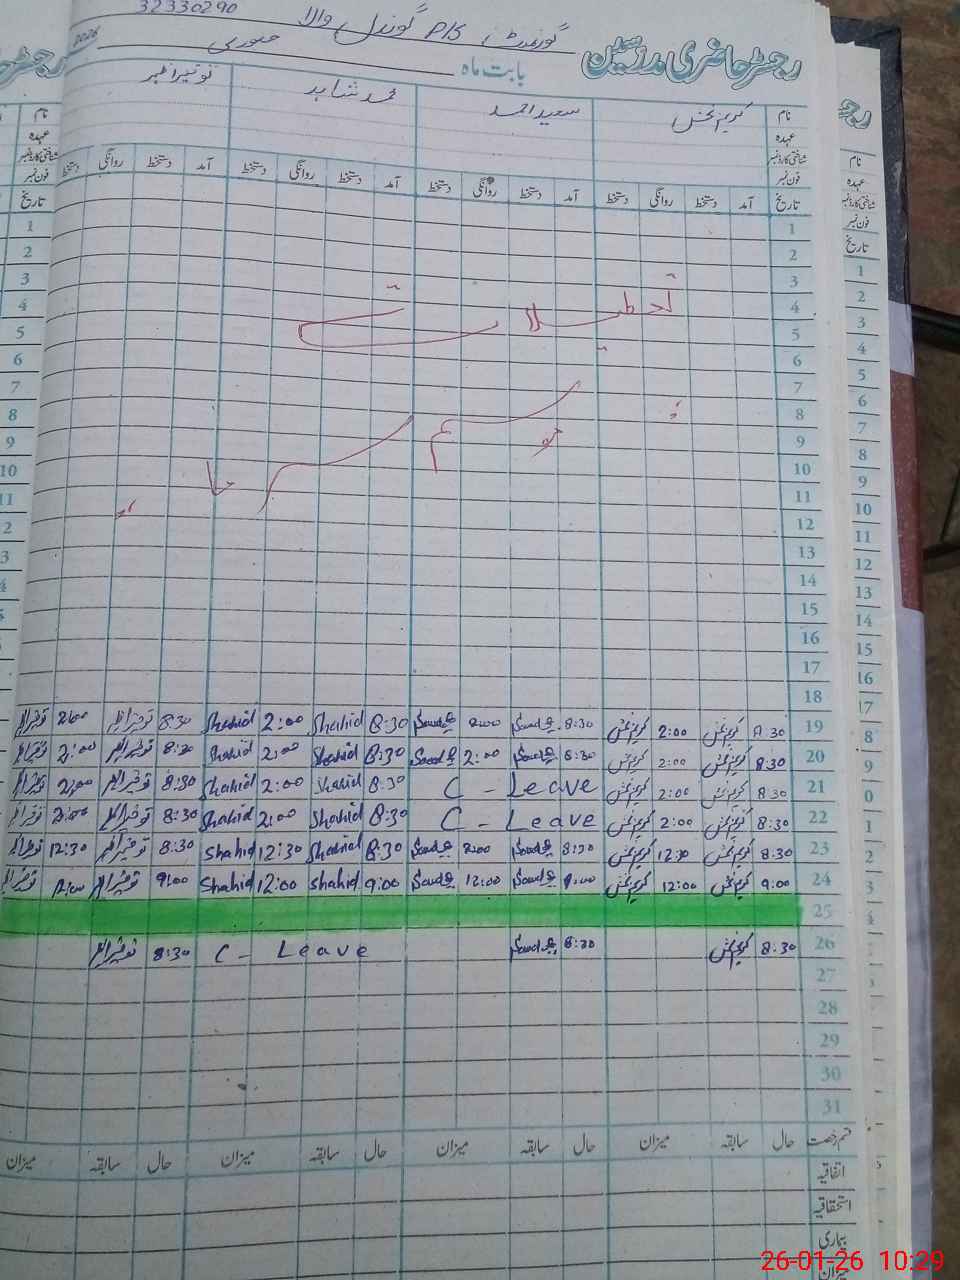 32330290
گورنمنٹ P/S گوندل والا
رجسٹر حاضری مدرسین
بابت ماہ جنوری 2026
نام کریم بخش سعید احمد محمد شاہد توقیر اظہر
عہدہ
شناختی کارڈ نمبر
فون نمبر
تاریخ آمد دستخط روانگی دستخط آمد دستخط روانگی دستخط آمد دستخط روانگی دستخط آمد دستخط روانگی دستخط
1
2
3
4
5
6
7
8
9
10
11
12
13
14
15
16
17
18
تعطیلات
موسم سرما
19 8:30 کریم بخش 2:00 کریم بخش 8:30 Saeed 2:00 Saeed 8:30 Shahid 2:00 Shahid 8:30 توقیر اظہر 2:00 توقیر اظہر
20 8:30 کریم بخش 2:00 کریم بخش 8:30 Saeed 2:00 Saeed 8:30 Shahid 2:00 Shahid 8:30 توقیر اظہر 2:00 توقیر اظہر
21 8:30 کریم بخش 2:00 کریم بخش C - Leave 8:30 Shahid 2:00 Shahid 8:30 توقیر اظہر 2:00 توقیر اظہر
22 8:30 کریم بخش 2:00 کریم بخش C - Leave 8:30 Shahid 2:00 Shahid 8:30 توقیر اظہر 2:00 توقیر اظہر
23 8:30 کریم بخش 12:30 کریم بخش 8:30 Saeed Saeed 8:30 Shahid 12:30 Shahid 8:30 توقیر اظہر 12:30 توقیر اظہر
24 9:00 کریم بخش 12:00 کریم بخش 9:00 Saeed 12:00 Saeed 9:00 Shahid 12:00 Shahid 9:00 توقیر اظہر 12:00 توقیر اظہر
25
26 8:30 کریم بخش 8:30 Saeed C - Leave 8:30 توقیر اظہر
27
28
29
30
31
قسم رخصت حال سابقہ میزان حال سابقہ میزان حال سابقہ میزان حال سابقہ میزان
اتفاقیہ
استحقاقیہ
بیماری
میزان
26-01-26 10:29